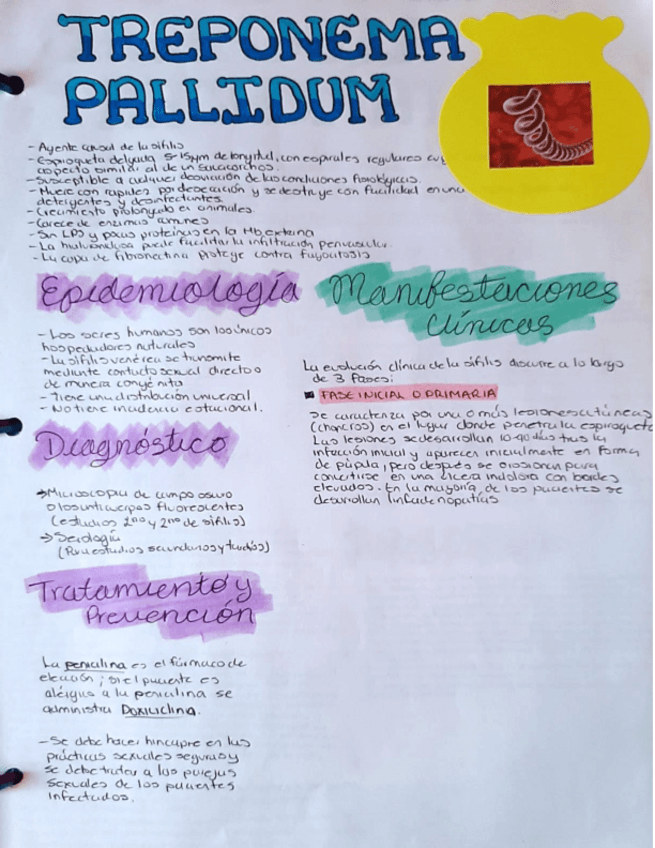 TREPONEMA
PALLIDUM
- Agente causal de la sífilis
- Espiroqueta delgada 5-15µm de longitud, con espirales regulares cuy
aspecto similar al de un sacacorchos.
- Susceptible a cualquier desviación de las condiciones fisiológicas.
- Muere con rapidez por desecación y se destruye con facilidad en una
detergentes y desinfectantes.
- Crecimiento prolongado en animales.
- Carece de enzimas comunes
- Sin LPS y pocas proteínas en la Mb externa
- La hialuronidasa puede facilitar la infiltración perivascular.
- La capa de fibronectina protege contra fagocitosis
Epidemiología
- Los seres humanos son los únicos
hospedadores naturales
- La sífilis venérea se transmite
mediante contacto sexual directo o
de manera congénita
- Tiene una distribución universal
- No tiene incidencia estacional.
Diagnóstico
→ Microscopia de campo oscuro
o los anticuerpos fluorescentes
(estudios 1rio y 2rio de sífilis)
→ Serología
(Para estudios secundarios y tardíos)
Tratamiento y
Prevención
La penicilina es el fármaco de
elección; si el paciente es
alérgico a la penicilina se
administra Doxiciclina.
- Se debe hacer hincapie en las
prácticas sexuales seguras y
se debe tratar a las parejas
sexuales de los pacientes
infectados.
Manifestaciones
Clínicas
La evolución clínica de la sífilis discurre a lo largo
de 3 fases:
■ FASE INICIAL O PRIMARIA
Se caracteriza por una o más lesiones cutáneas
(chancros) en el lugar donde penetra la espiroqueta
Las lesiones se desarrollan 10-90 días tras la
infección inicial y aparecen inicialmente en forma
de pápula, pero después se erosionan para
convertirse en una úlcera indolora con bordes
elevados. En la mayoría de los pacientes se
desarrollan linfadenopatías